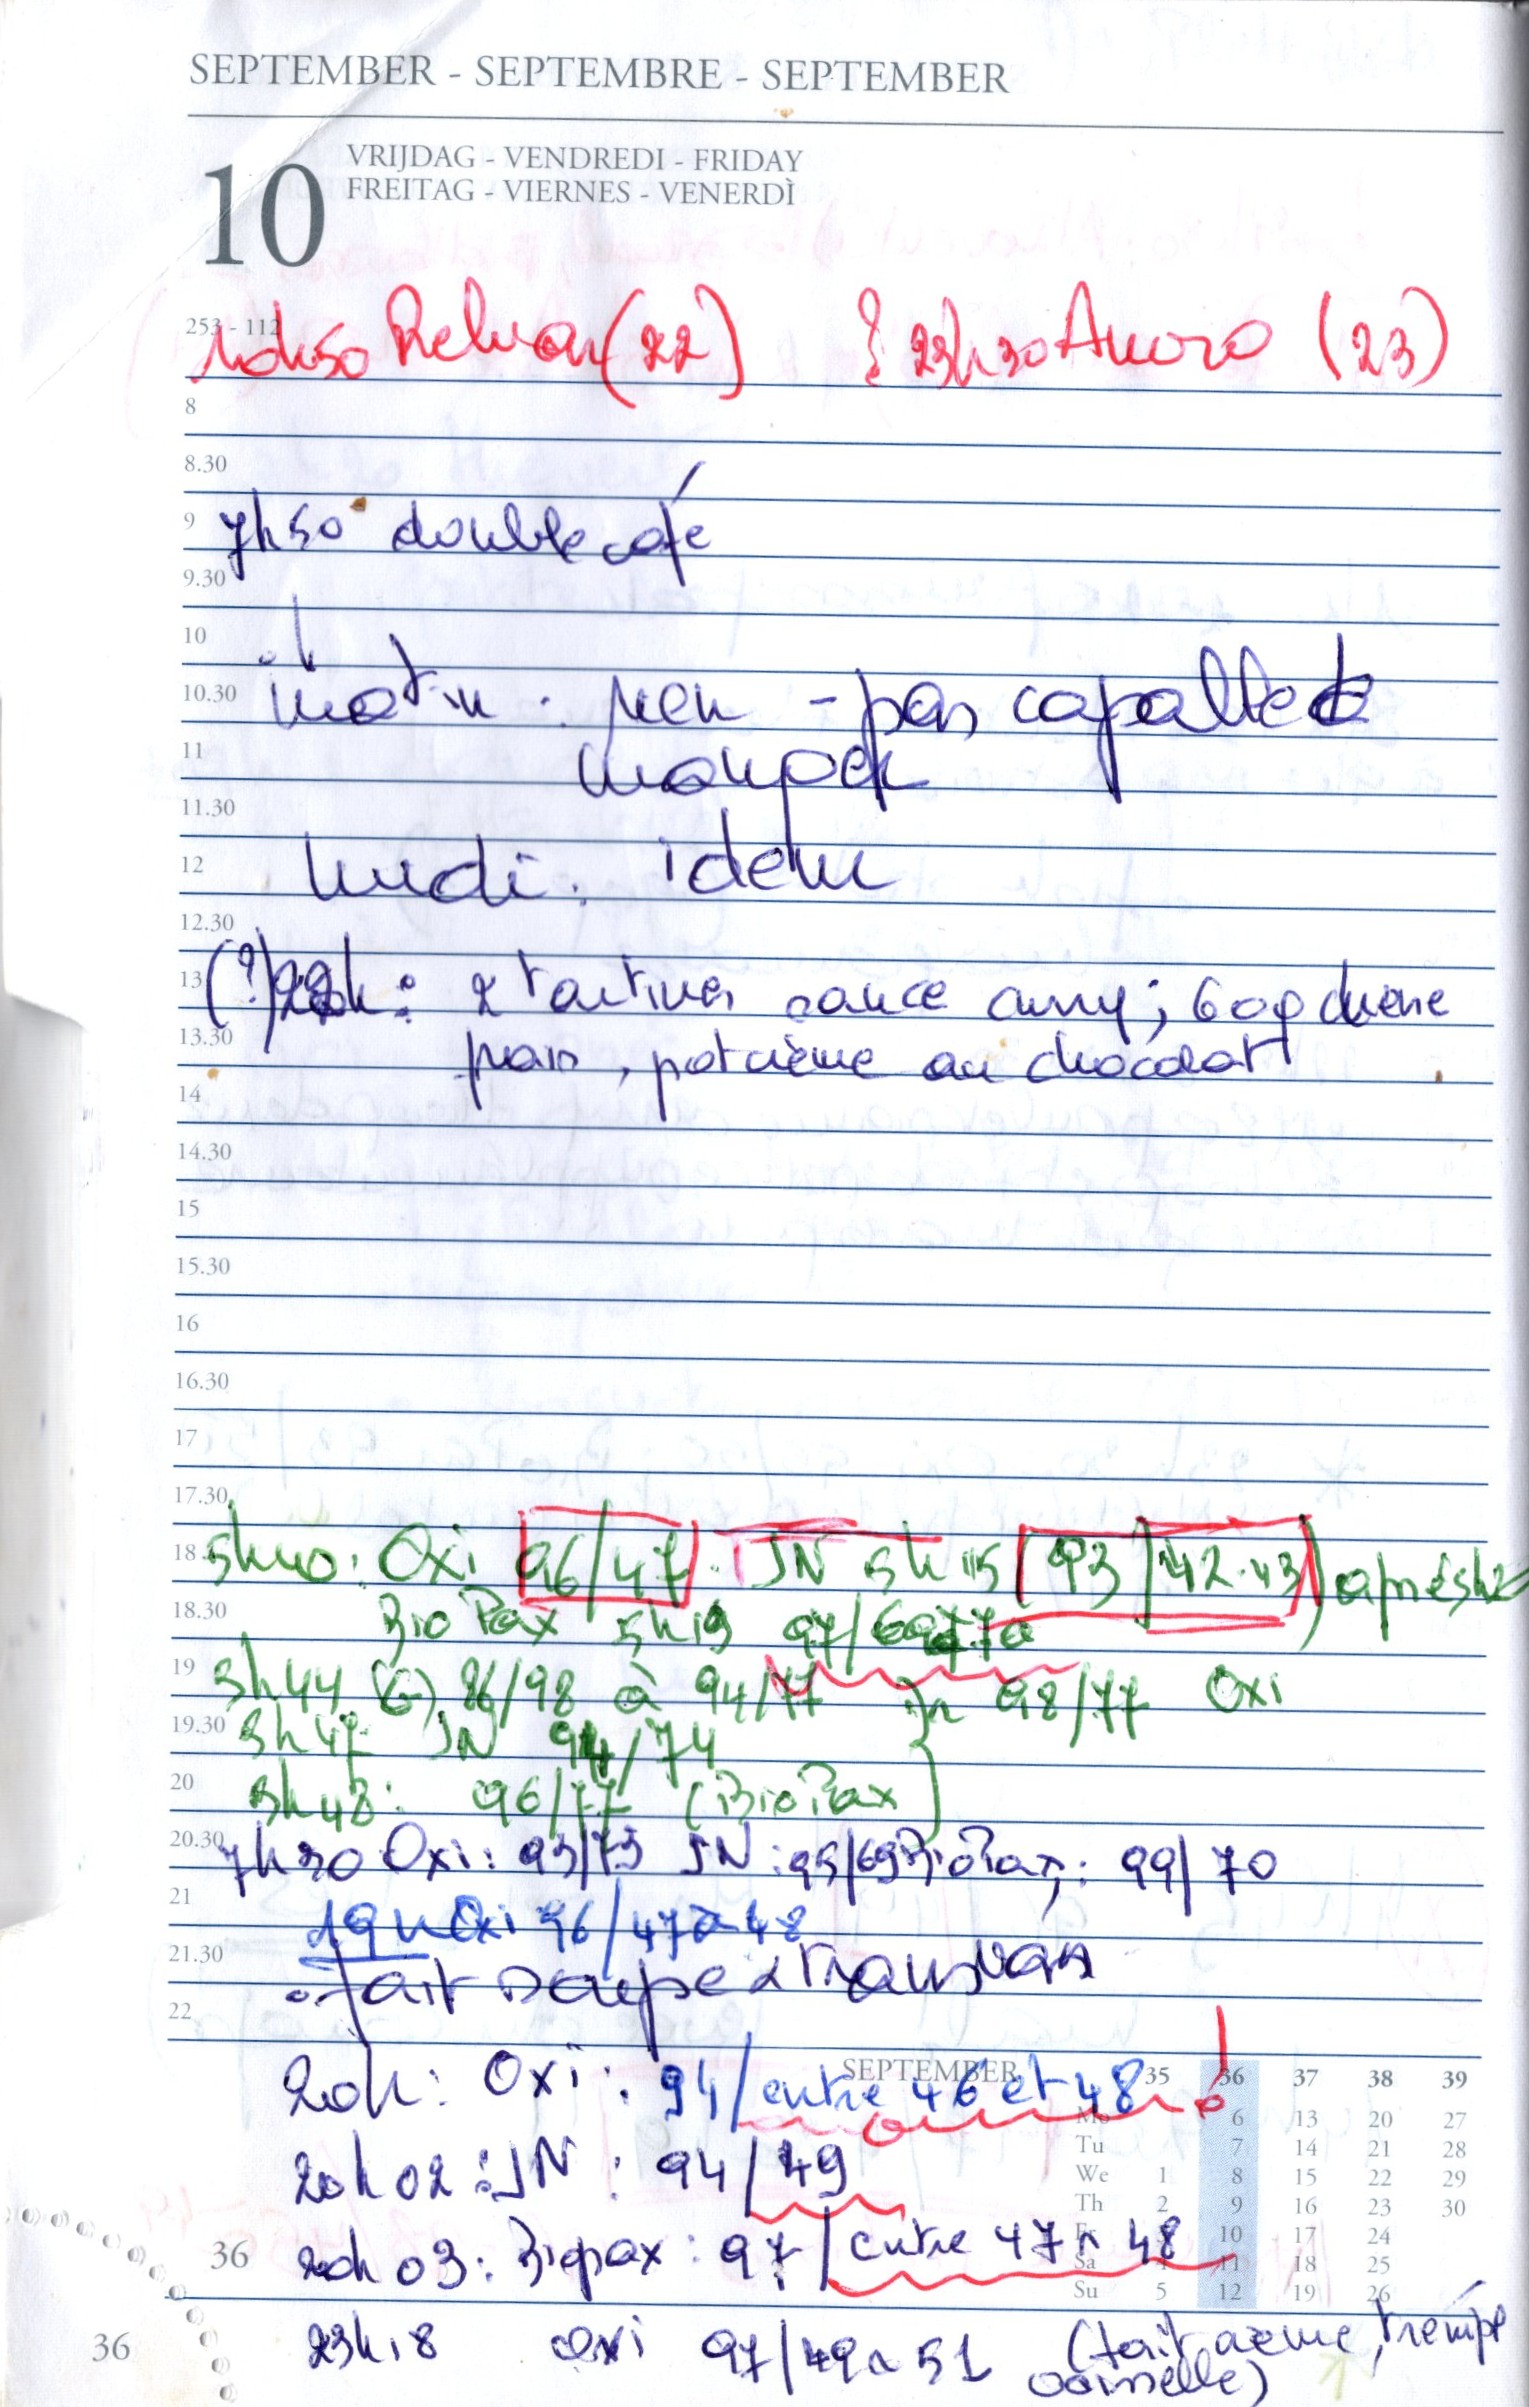 SEPTEMBER - SEPTEMBRE - SEPTEMBER
10
VRIJDAG - VENDREDI - FRIDAY
FREITAG - VIERNES - VENERDÌ
253 - 112
Relvar (22) 23h30 Anoro (23)
8
8.30
9 7h50 double café
9.30
10
10.30 matin : rien - pas capable de
11 manger
11.30
12 midi : idem
12.30
13 (?) 22h : 2 tartines sauce curry ; 60g chèvre
13.30 frais, pot crème au chocolat
14
14.30
15
15.30
16
16.30
17
17.30
18 5h40 : Oxi 96/47 JN 5h15 (93/42.43) après
18.30 BioPax 5h19 97/69
19 5h44 (G) 86/98 à 94/77 98/77 Oxi
19.30 5h47 JN 94/74
20 5h48 : 96/77 (BioPax)
20.30 7h30 Oxi : 93/73 JN : 95/69 BioPax : 99/70
21 19h Oxi 96/47 à 48
21.30 fait soupe &
22
20h : Oxi : 94/entre 46 et 48 !
20h02 : JN : 94/49
20h03 : Biopax : 97/entre 47 à 48
23h18 Oxi 97/49 à 51 (fait crème, trempé
vaisselle)
SEPTEMBER 35 36 37 38 39
Mo 6 13 20 27
Tu 7 14 21 28
We 1 8 15 22 29
Th 2 9 16 23 30
Fr 10 17 24
Sa 4 11 18 25
Su 5 12 19 26
36
36